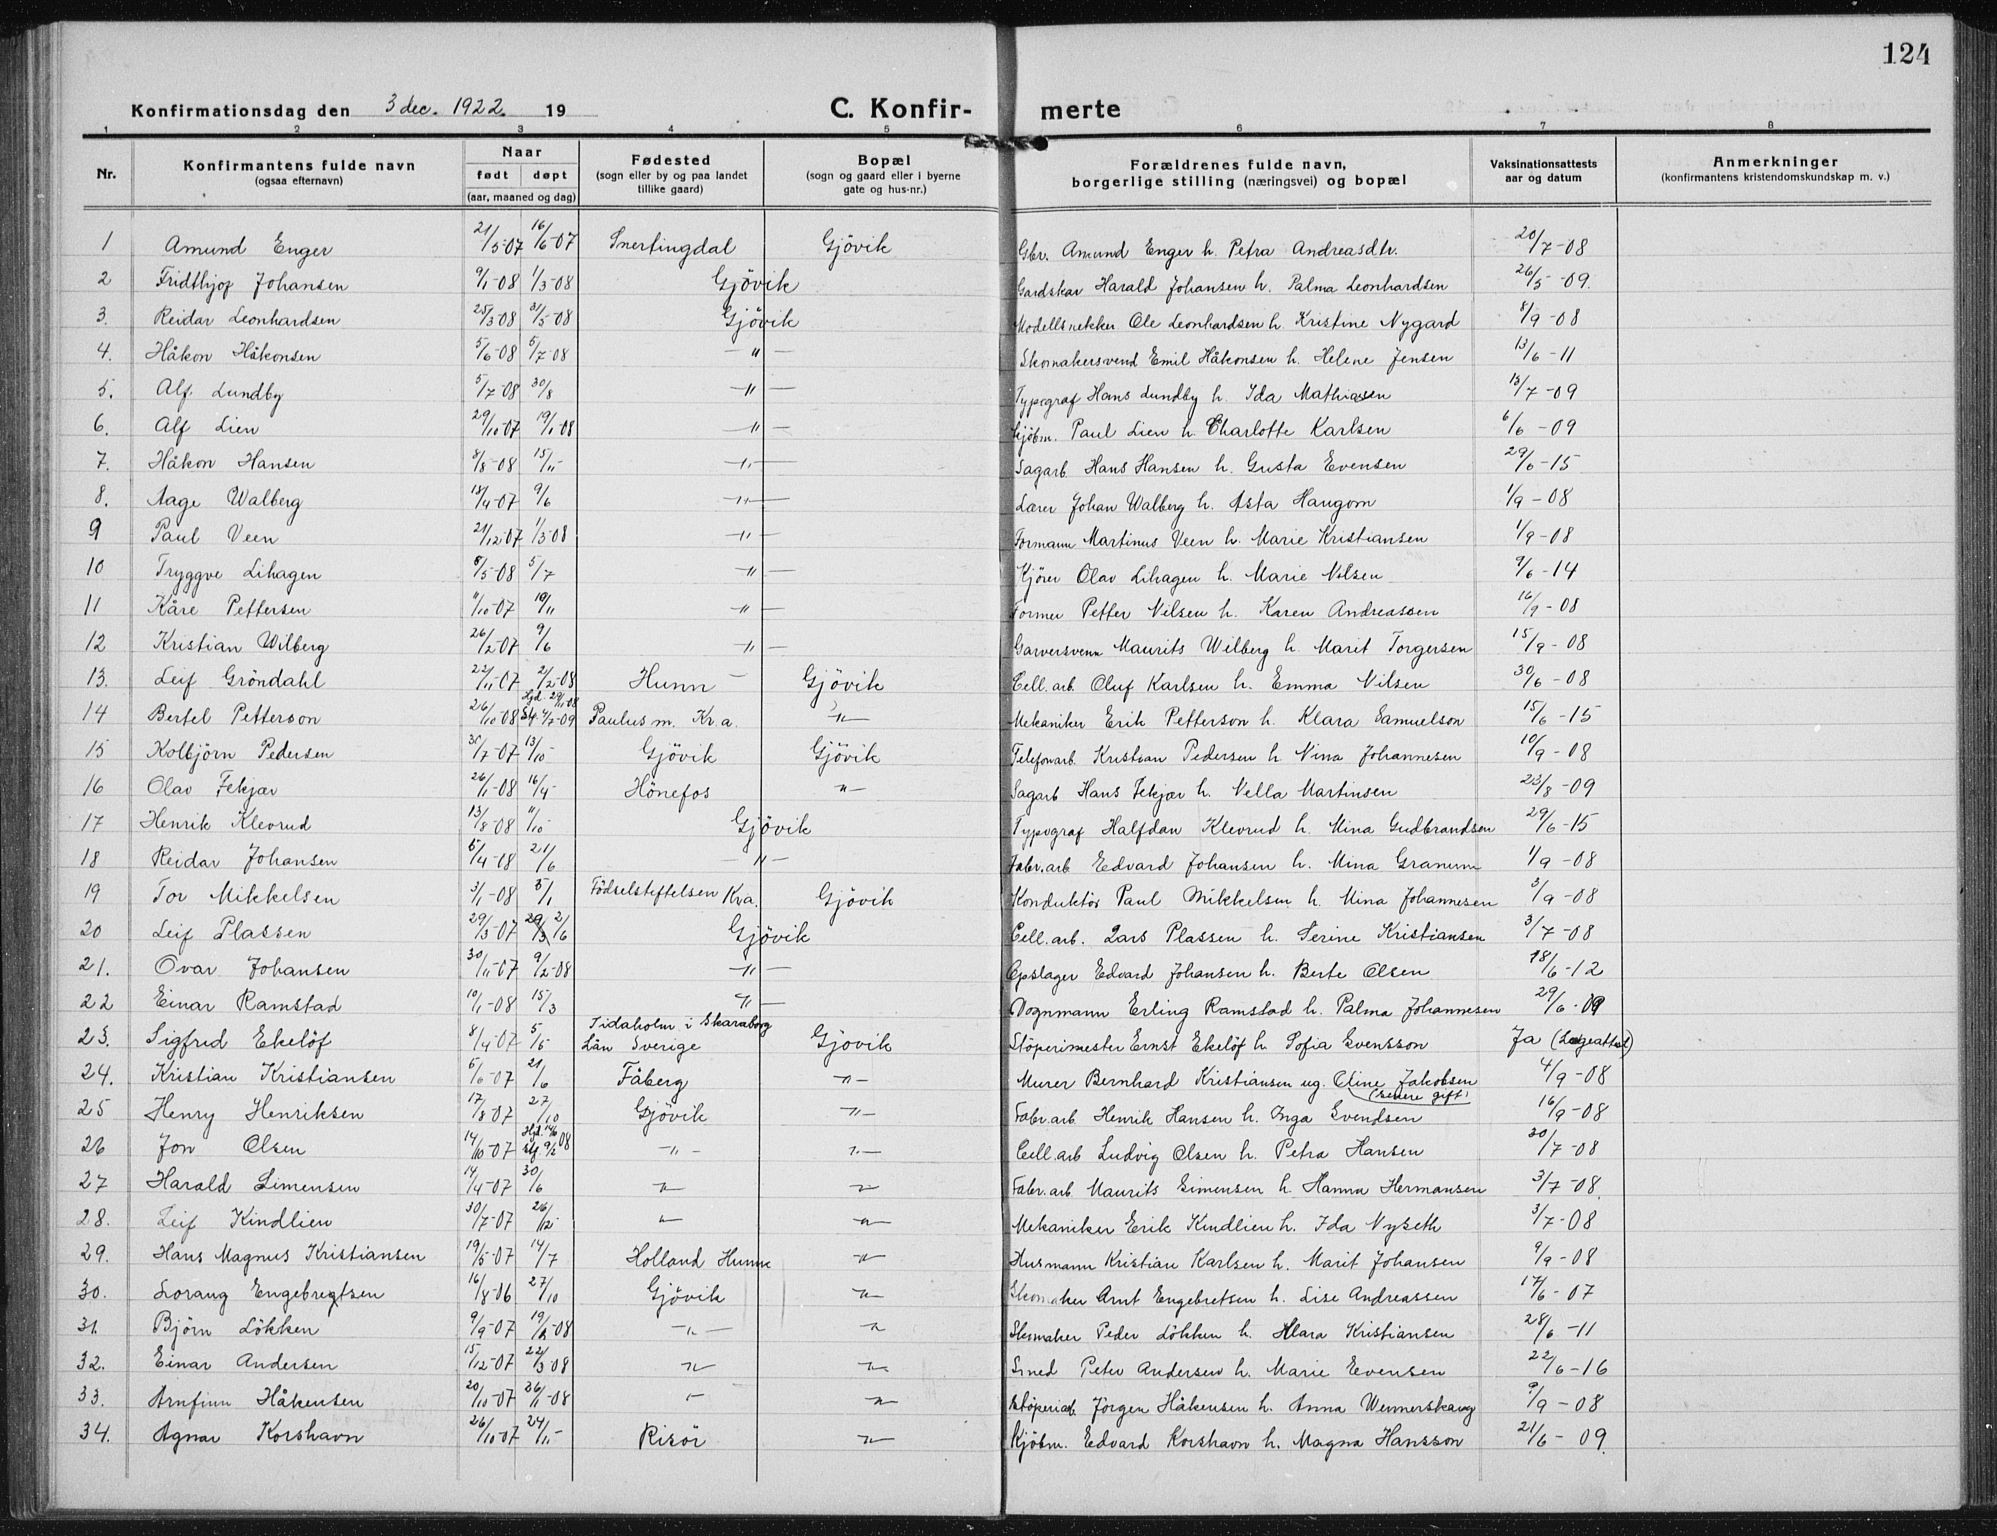 124
Konfirmationsdag den 3 dec. 1922. 19
C. Konfir- merte
1 2 3 4 5 6 7 8
Nr. Konfirmantens fulde navn (ogsaa efternavn) Naar født døpt (aar, maaned og dag) Fødested (sogn eller by og paa landet tillike gaard) Bopæl (sogn og gaard eller i byerne gate og hus-nr.) Forældrenes fulde navn, borgerlige stilling (næringsvei) og bopæl Vaksinationsattests aar og datum Anmerkninger (konfirmantens kristendomskundskap m. v.)
1 Amund Enger 21/5-07 16/6-07 Snertingdal Gjövik Gbr. Amund Enger h. Petra Andreasdtr. 20/7-08
2 Fridthjof Johansen 9/1-08 1/3-08 Gjövik Gardskar Harald Johansen h. Palma Leonhardsen 26/5-09.
3. Reidar Leonhardsen 25/3-08 31/5-08 Gjövik Modellsnekker Ole Leonhardsen h. Kristine Nygard 8/9-08
4. Håkon Håkonsen 5/6-08 5/7-08 —"— Skomakersvend Emil Håkonsen h. Helene Jensen 13/6-11
5. Alf Lundby 5/7-08 30/8 —"— Typograf Hans Lundby h. Ida Mathiasen 13/7-09
6. Alf Lien 29/10-07 19/1-08 —"— Kjöbm. Paul Lien h. Charlotte Karlsen 6/6-09
7. Håkon Hansen 8/8-08 15/11 —"— Sagarb. Hans Hansen h. Gusta Evensen 29/6-15
8. Aage Walberg 13/4-07 9/6 —"— Lærer Johan Walberg h. Asta Haugom 1/9-08
9 Paul Veen 21/12-07 1/3-08 —"— Formann Martinus Veen h. Marie Kristiansen 1/9-08
10 Tryggve Lihagen 8/5-08 5/7 —"— Kjörer Olav Lihagen h. Marie Nilsen 9/6-14
11 Kåre Pettersen 11/10-07 19/11 —"— Former Petter Nilsen h. Karen Andreassen 16/9-08
12 Kristian Wilberg 26/2-07 9/6 —"— Garversvenn Maurits Wilberg h. Marit Torgersen 15/9-08
13. Leif Gröndahl 22/11-07 2/2-08 Hunn Gjövik Cell. arb. Oluf Karlsen h. Emma Nilsen 30/6-08
14 Bertel Petterson 26/10-08 Hjd. 29/11-08 St. 4/7-09 Paulus m. Kr.a. —"— Mekaniker Erik Petterson h. Klara Samuelson 15/6-15
15 Kolbjörn Pedersen 30/7-07 13/10 Gjövik Gjövik Telefonarb. Kristian Pedersen h Nina Johannesen 10/9-08
16 Olav Fekjær 26/1-08 16/4 Hönefos —"— Sagarb Hans Fekjær h. Nella Martinsen 23/8-09
17 Henrik Klevrud 13/8-08 11/10 Gjövik Typograf Halfdan Klevrud h. Mina Gudbrandsen 29/6-15
18 Reidar Johansen 5/4-08 21/6 —"— Fabr.arb Edvard Johansen h. Mina Granum 1/9-08
19 Tor Mikkelsen 3/1-08 5/1 Födselstiftelsen Kra. Gjövik Konduktör Paul Mikkelsen h. Mina Johannesen 3/9-08
20 Leif Plassen 29/3-07 29/3 2/6 Gjövik Cell. arb. Lars Plassen h. Serine Kristiansen 3/7-08
21. Ovar Johansen 30/11-07 9/2-08 —"— Opslager Edvard Johansen h. Berte Olsen 18/6-12
22 Einar Ramstad 10/1-08 15/3 —"— Vognmann Erling Ramstad h. Palma Johannesen 29/6-09
23. Sigfred Ekelöf 8/4-07 5/5 Tidaholm i Skaraborg Län Sverige Gjövik Stöperimester Ernst Ekelöf h Sofia Svensson Ja (Lægeattest)
24. Kristian Kristiansen 5/6-07 21/6 Fåberg —"— Murer Bernhard Kristiansen ug. Oline Jakobsen (senere gift) 4/9-08
25 Henry Henriksen 17/8-07 27/10 Gjövik —"— Fabr.arb. Henrik Hansen h. Inga Svendsen 16/9-08
26 Jon Olsen 14/10-07 —"— —"— Cell. arb Ludvig Olsen h. Petra Hansen 30/7-08
27 Harald Simensen 14/4-07 30/6 —"— —"— Fabr. arb. Maurits Simensen h. Hanna Hermansen 3/7-08.
28. Leif Kindlien 30/7-07 26/12 —"— —"— Mekaniker Erik Kindlien h. Ida Nyseth 3/7-08
29. Hans Magnus Kristiansen 19/5-07 14/7 Holland Hunn —"— Husmann Kristian Karlsen h. Marit Johansen 9/9-08
30. Lorang Engebretsen 16/8-06 27/10 Gjövik —"— Skomaker Arnt Engebretsen h. Lise Andreassen 17/6-07
31. Björn Lökken 9/9-07 —"— —"— Skomaker Peder Lökken h. Klara Kristiansen 28/6-11
32. Einar Andersen 15/12-07 22/3-08 —"— —"— Smed Peter Andersen h. Marie Evensen 22/6-16
33. Arnfinn Håkensen 20/10-07 26/1-08 —"— —"— Stöperiarb. Jörgen Håkensen h. Anna Wennerskaug 9/9-08
34. Agnar Korshavn 26/10-07 24/11 Risör —"— Kjöbm. Edvard Korshavn h. Magna Hansson 21/6-09.